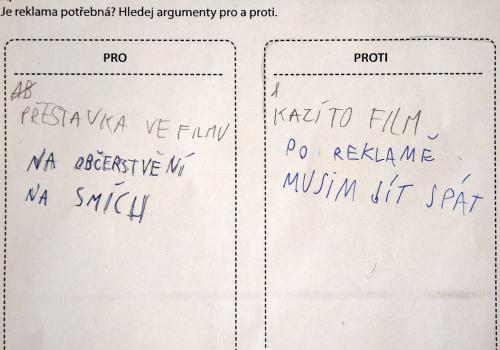 Je reklama potřebná? Hledej argumenty pro a proti.
PRO
PŘESTAVKA VE FILMU
NA OBČERSTVĚNÍ
NA SMÍCH
PROTI
KAZÍ TO FILM
PO REKLAMĚ
MUSIM JÍT SPÁT